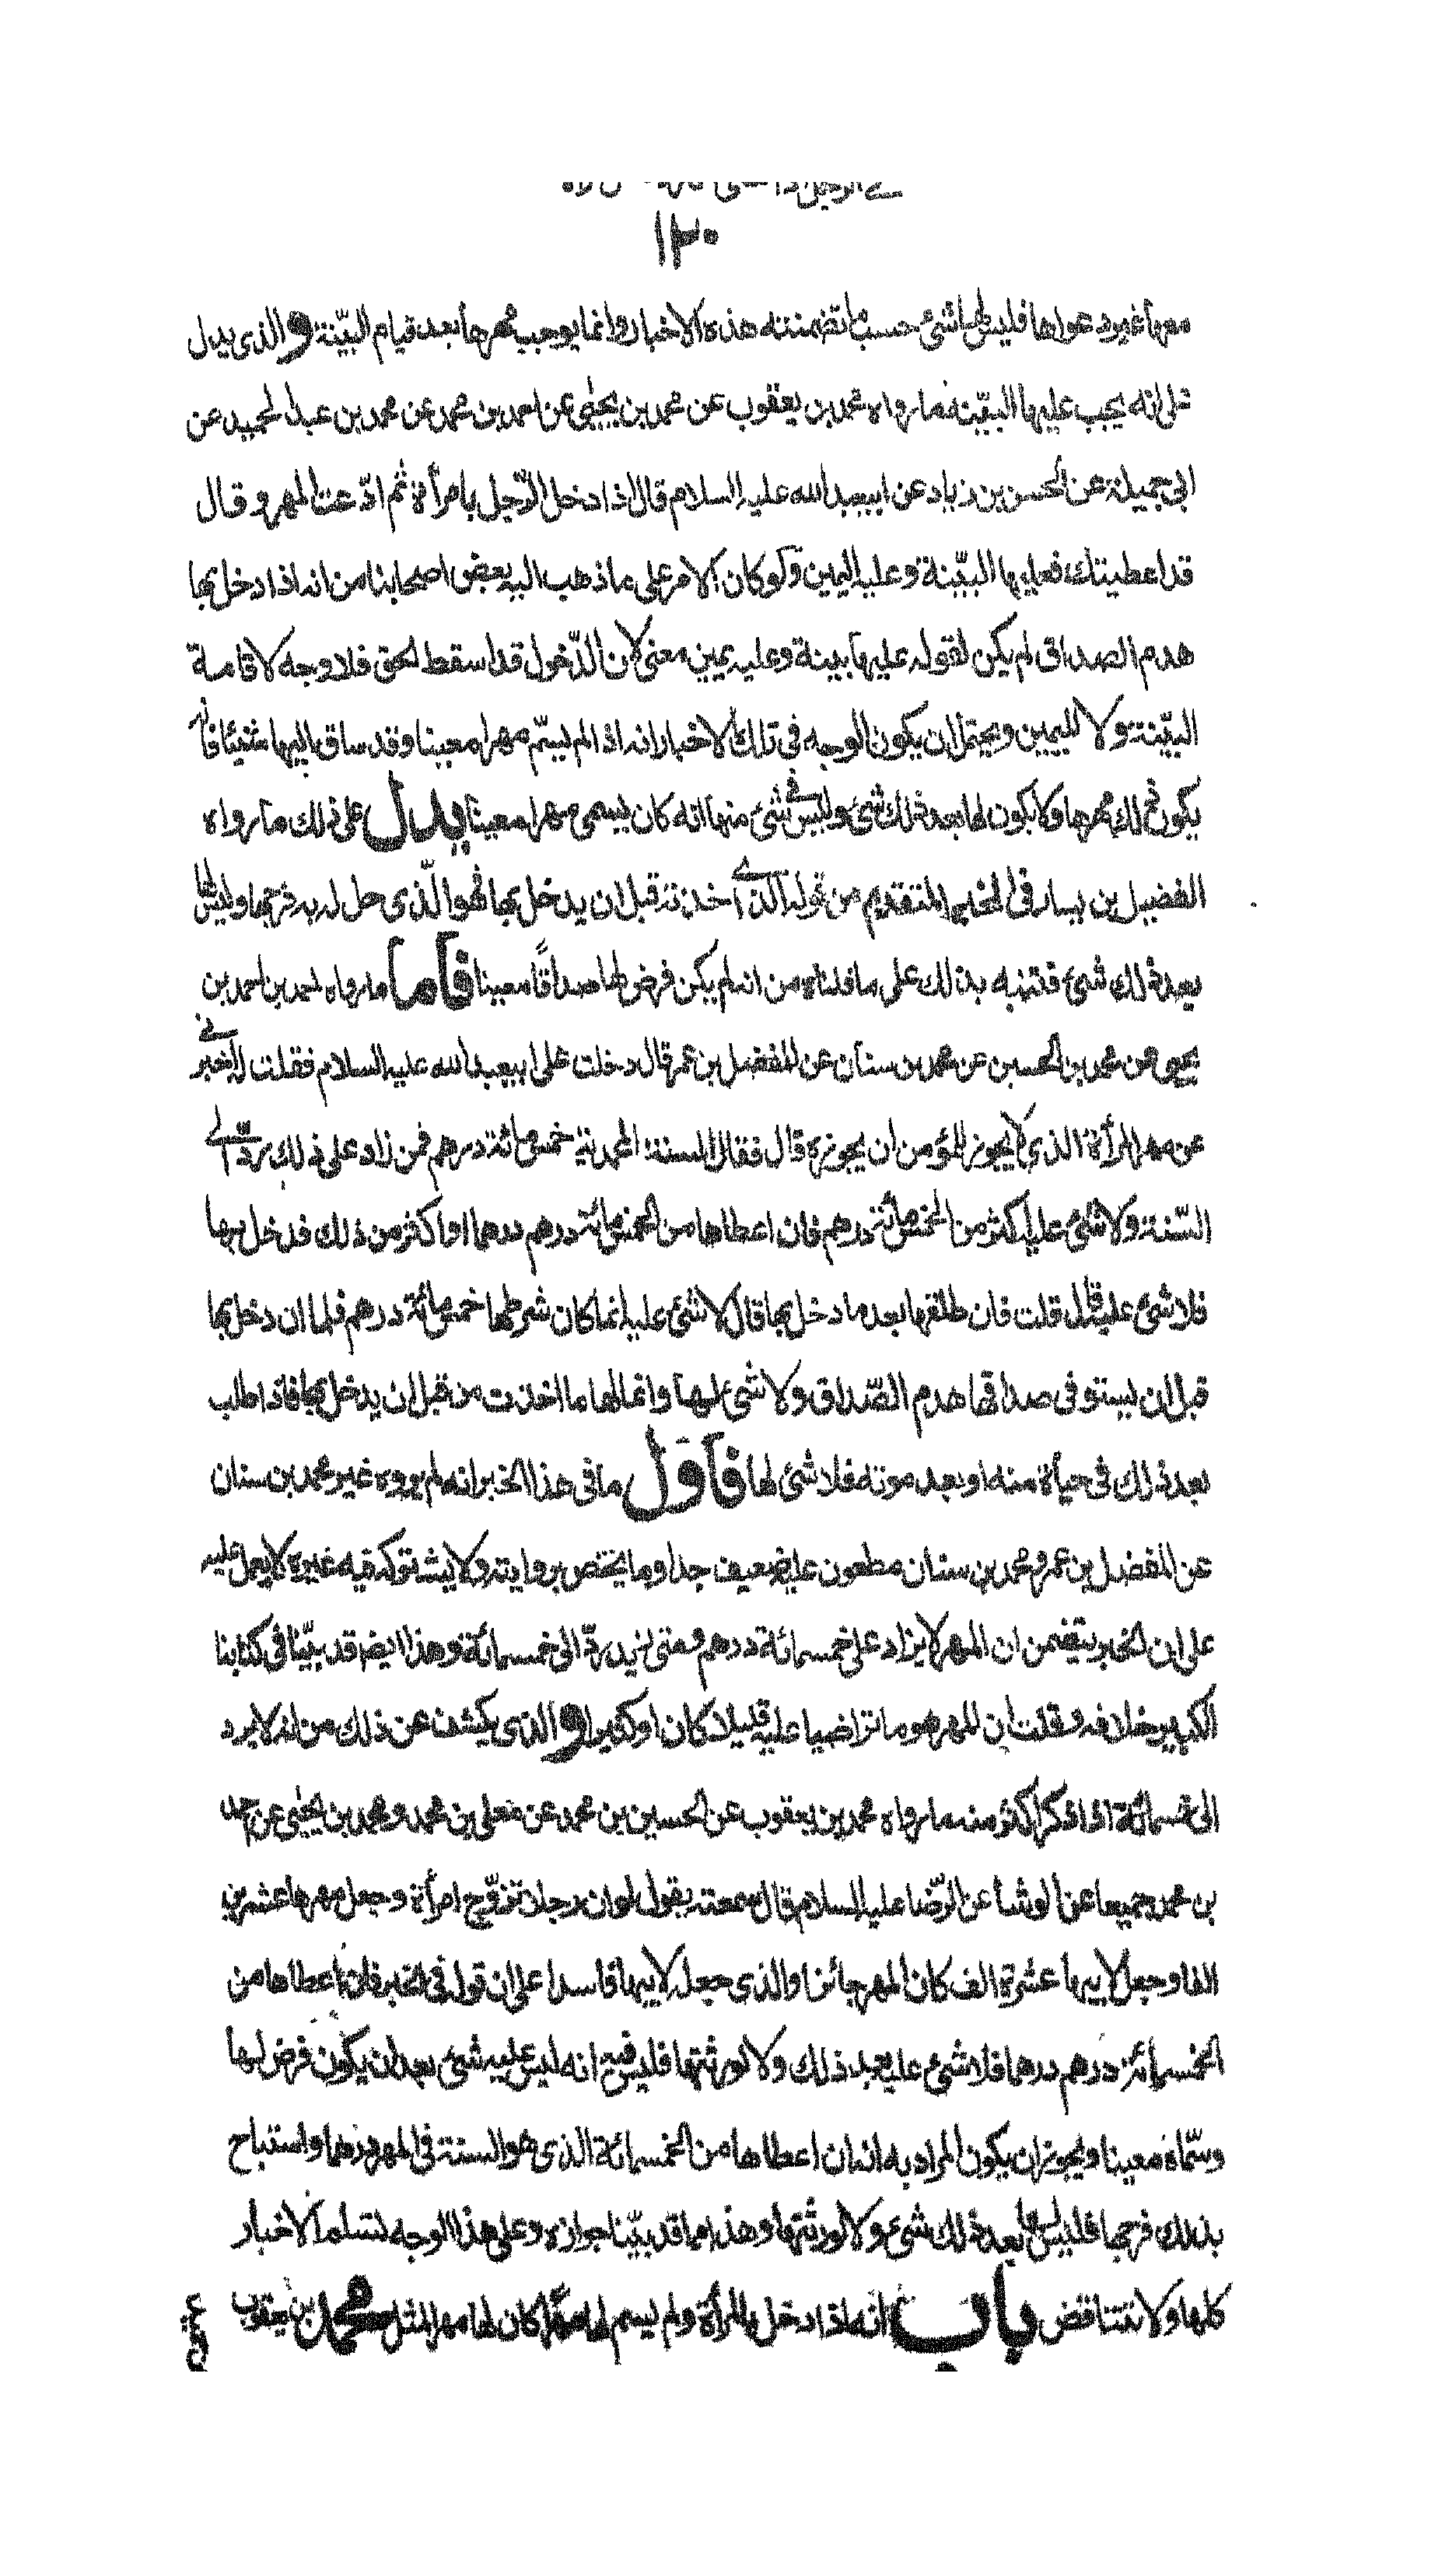 ١٢٠
معها غير دعواها فليس لها شئ حسب ما تضمنته هذه الاخبار وانما يوجب مهرها بعد قيام البيّنة والذى يدل
على انه يجب عليها البيّنة ما رواه محمد بن يعقوب عن محمد بن يحيى عن احمد بن محمد عن محمد بن عبد الحميد عن
ابى جميلة عن الحسن بن زياد عن ابيعبد الله عليه السلام قال اذا دخل الرّجل بامرأة ثم ادّعت المهر وقال
قد اعطيتك فعليها البيّنة وعليه اليمين ولو كان الامر على ما ذهب اليه بعض اصحابنا من انه اذا دخل بها
هدم الصداق لم يكن لقوله عليها بينة وعليه يمين معنى لان الدّخول قد اسقط الحق فلا وجه لاقامة
البيّنة ولا لليمين ويحتمل ان يكون الوجه فى تلك الاخبار انه اذا لم يسّم مهرا معينا وقد ساق اليها شيئا فانه
يكون ذلك مهرها ولا يكون لها بعد ذلك شئ وليس فى شئ منها انه كان يسمى مهرا معينا يدل على ذلك ما رواه
الفضيل بن يسار فى الخبر المتقدم من قوله الذى اخذته قبل ان يدخل بها فهو الّذى حل له به فرجها وليس لها
بعد ذلك شئ فتنبه بذلك على ما قلناه من انه لم يكن فرض لها صداقًا معينا فاما ما رواه احمد بن احمد بن
يحيى عن محمد بن الحسين عن محمد بن سنان عن المفضل بن عمر قال دخلت على ابيعبد الله عليه السلام فقلت له اخبرنى
عن مهر المرأة الذى لا يجوز للمؤمن ان يجوزه قال فقال السنة المحمدية خمسمائة درهم فمن زاد على ذلك ردّ الى
السّنة ولا شئ عليه اكثر من الخمسمائة درهم فان اعطاها من الخمسمائة درهم درهما او اكثر من ذلك فدخل بها
فلا شئ عليه قال قلت فان طلقها بعد ما دخل بها قال لا شئ عليه انما كان شرطها خمسمائة درهم فلما ان دخل بها
قبل ان يستوفى صداقها هدم الصّداق ولا شئ لها وانما لها ما اخذت من قبل ان يدخل بها فاذا طلب
بعد ذلك فى حياة منه او بعد موته فلا شئ لها فاول ما فى هذا الخبر انه لم يروه غير محمد بن سنان
عن المفضل بن عمر ومحمد بن سنان مطعون عليه ضعيف جدا وما يختص بروايته ولا يشركه فيه غيره لا يعمل عليه
على ان الخبر يتضمن ان المهر لا يزاد على خمسمائة درهم ومتى زيد ردّ الى خمسمائة وهذا ايضا قد بيّنا فى كتابنا
الكبير خلافه وقلت ان المهر هو ما تراضيا عليه قليلا كان او كثيرا والذى يكشف عن ذلك من انه لا يرد
الى خمسمائة اذا ذكر اكثر منه ما رواه محمد بن يعقوب عن الحسين بن محمد عن معلى بن محمد ومحمد بن يحيى عن احمد
بن محمد جميعا عن الوشا عن الرّضا عليه السلام قال سمعته يقول لو ان رجلا تزوّج امرأة وجعل مهرها عشرين
الفا وجعل لابيها عشرة الف كان المهر جائزا والذى جعل لابيها فاسدا على ان قوله فى الخبر فان اعطاها من
الخمسمائة درهم درهما فلا شئ عليه بعد ذلك ولا لورثتها فليس فيه انه ليس عليه شئ بعد ان يكون فرض لها
وسّماه معينا ويجوز ان يكون المراد به انه ان اعطاها من الخمسمائة الذى هو السنة فى المهر درهما واستباح
بذلك فرجها فليس لها بعد ذلك شئ ولا لورثتها وهذا مما قد بيّنا جوازه وعلى هذا الوجه لتسلم الاخبار
كلها ولا تتناقض باب انه اذا دخل بالمرأة ولم يسم لها مهرا كان لها مهر المثل محمد بن يعقوب